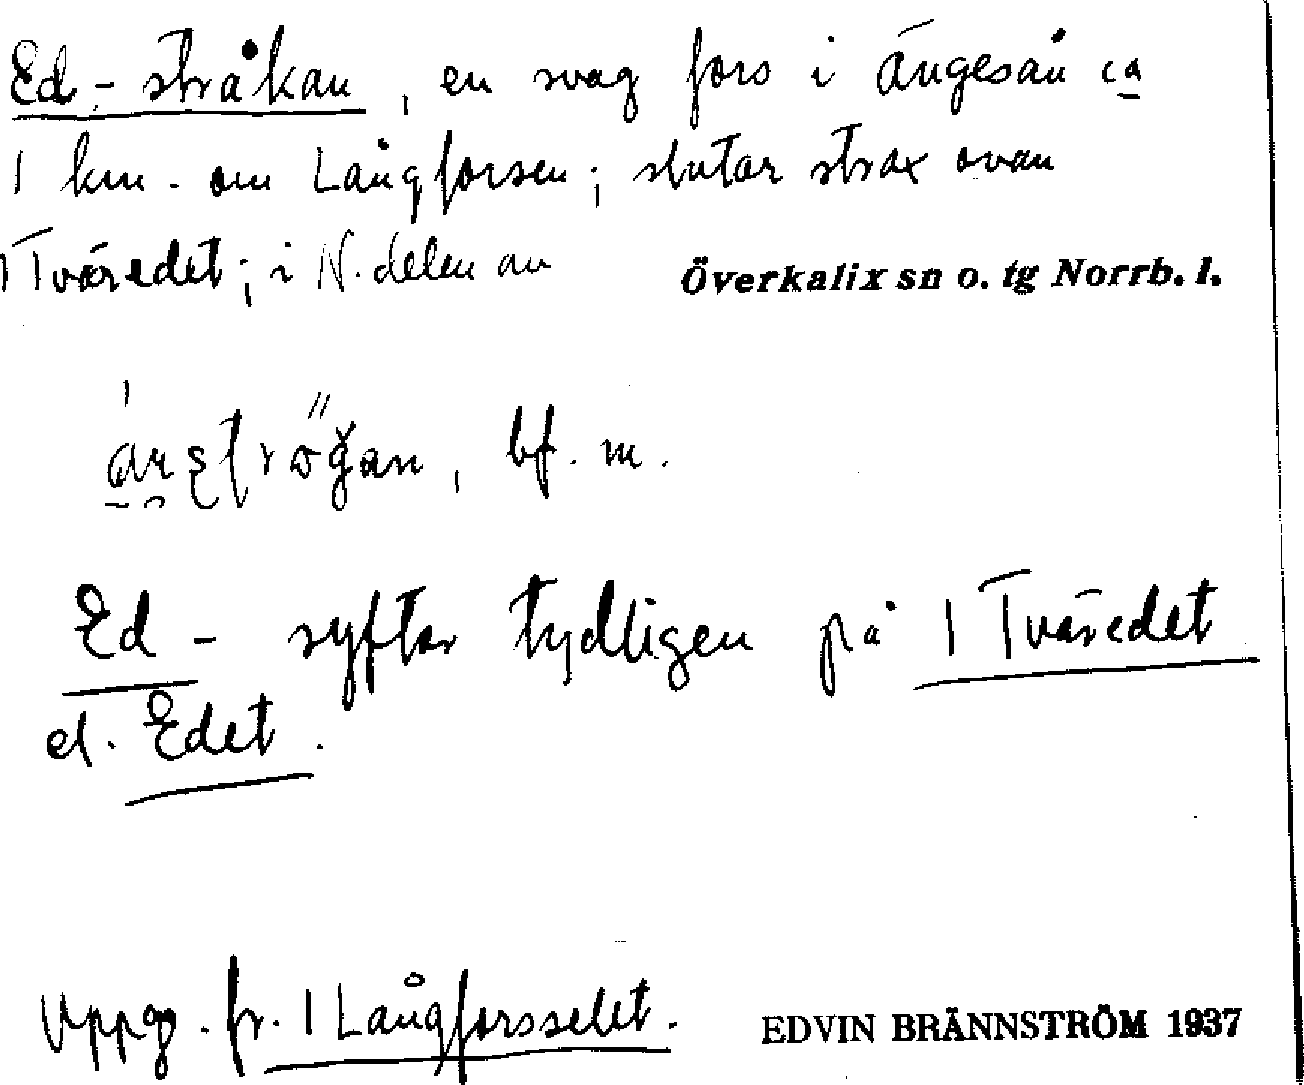 Ed-stråkan, en svag fors i Ängesån ca
1 km. om Långforsen; slutar strax ovan
1 Tväredet; i N. delen av
Överkalix sn o. tg Norrb. l.
bf. m.
Ed- syftar tydligen på 1 Tväredet
el. Edet.
Uppg. fr. 1 Långforsselet.
EDVIN BRÄNNSTRÖM 1937